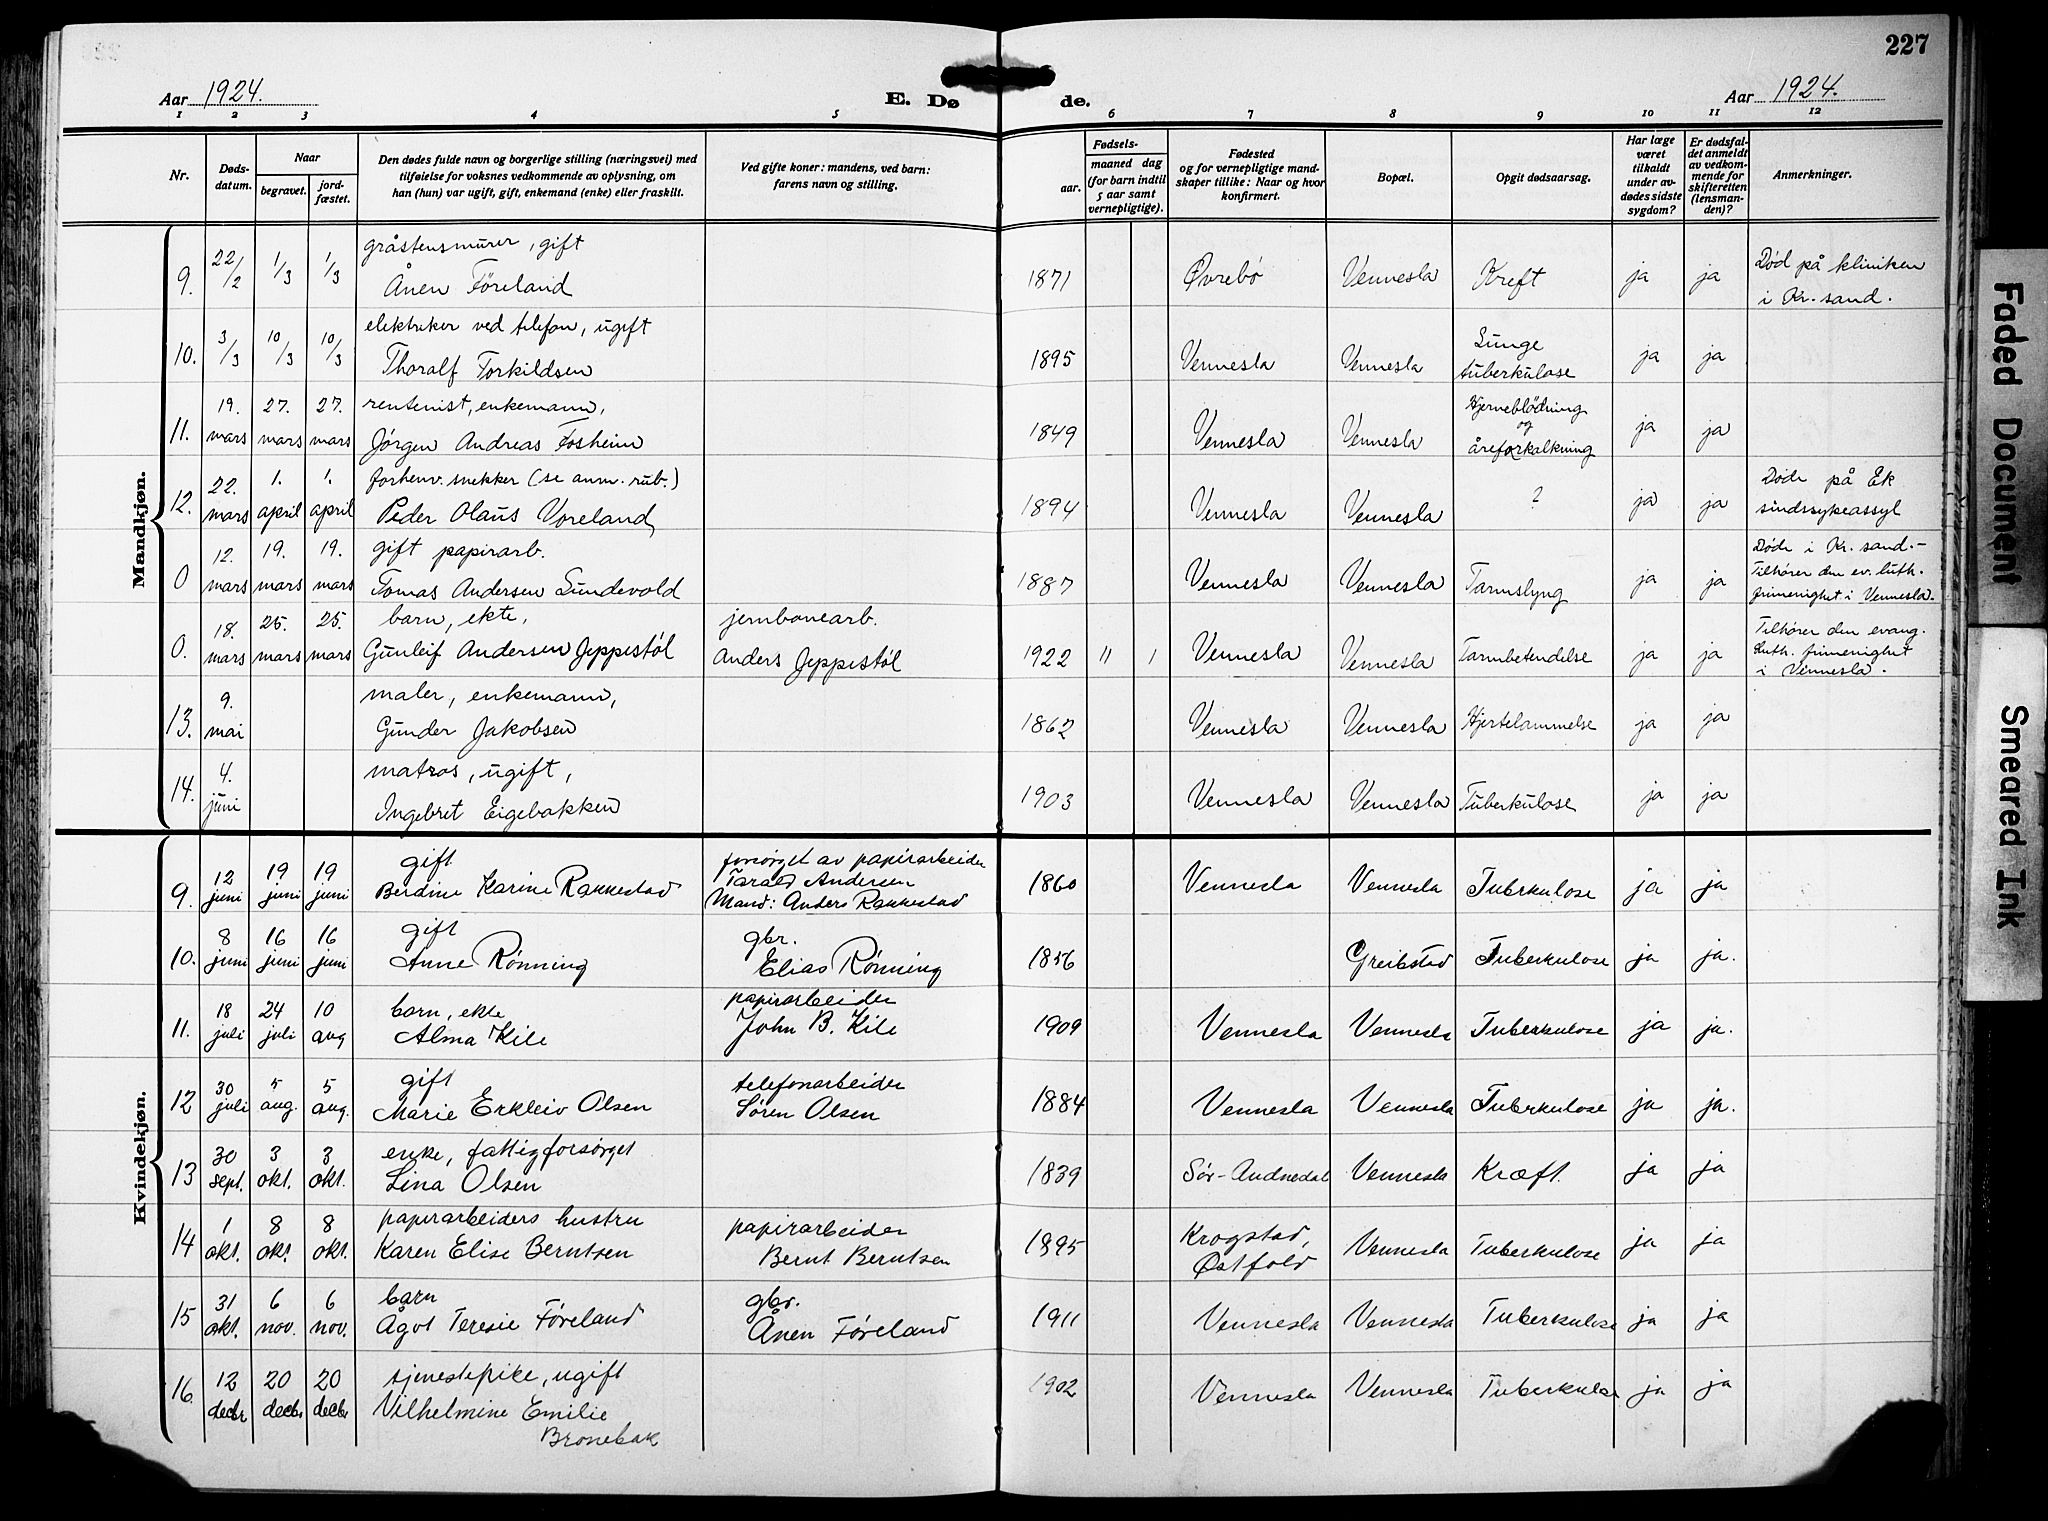 227
Aar 1924.
E. Dø de.
Aar 1924.
1 2 3 4 5 6 7 8 9 10 11 12
Nr.
Døds-
datum.
Naar
begravet.
jord-
fæstet.
Den dødes fulde navn og borgerlige stilling (næringsvei) med
tilføielse for voksnes vedkommende av oplysning, om
han (hun) var ugift, gift, enkemand (enke) eller fraskilt.
Ved gifte koner: mandens, ved barn:
farens navn og stilling.
Fødsels-
aar.
maaned dag
(for barn indtil
5 aar samt
vernepligtige).
Fødested
og for vernepligtige mand-
skaper tillike: Naar og hvor
konfirmert.
Bopæl.
Opgit dødsaarsag.
Har læge
været
tilkaldt
under av-
dødes sidste
sygdom?
Er dødsfal-
det anmeldt
av vedkom-
mende for
skifteretten
(lensman-
den)?
Anmerkninger.
Mandkjøn.
gråstensmurer, gift
9. 22/2 1/3 1/3 Ånen Föreland 1871 Øvrebø Vennesla Kreft ja ja Död på kliniken
i Kr. sand.
elektriker ved telefon, ugift
10. 3/3 10/3 10/3 Thoralf Torkildsen 1895 Vennesla Vennesla Lunge
tuberkulose ja ja
19. 27. 27. rentenist, enkemann,
11. mars mars mars Jørgen Andreas Fosheim 1849 Vennesla Vennesla Hjerneblödning
og
åreforkalkning ja ja
22. 1. 1. forhenv. snekker (se anm. rub.)
12. mars april april Peder Olaus Voreland 1894 Vennesla Vennesla ? ja ja Döde på Ek
sindssykeassyl
12. 19. 19. gift papirarb.
0 mars mars mars Tomas Andersen Sundevold 1887 Vennesla Vennesla Tarmslyng ja ja Döde i Kr. sand.-
Tilhører den ev. luth.
frimenighet i Vennesla.
18. 25. 25. barn, ekte, jernbanearb.
0. mars mars mars Gunleif Andersen Jeppestöl Anders Jeppestöl 1922 11 1 Vennesla Vennesla Tarmbetendelse ja ja Tilhører den evang.
Luth. frimenighet
i Vennesla.
9. maler, enkemann,
13. mai Gunder Jakobsen 1862 Vennesla Vennesla Hjertelammelse ja ja
4. matros, ugift,
14. juni Ingebret Eigebakken 1903 Vennesla Vennesla Tuberkulose ja ja
Kvindekjøn.
12 19 19 gift forsørget av papirarbeider
9. juni juni juni Berdine Karine Rakkestad Tarald Andersen
Mand: Anders Rakkestad 1860 Vennesla Vennesla Tuberkulose ja ja
8 16 16 gift gbr.
10. juni juni juni Anne Rönning Elias Rönning 1856 Greibstad Tuberkulose ja ja.
18 24 10 barn, ekte papirarbeider
11. juli juli aug Alma Kile John B. Kile 1909 Vennesla Vennesla Tuberkulose ja ja.
30 5 5 gift telefonarbeider
12 juli aug. aug. Marie Erkleiv Olsen Søren Olsen 1884 Vennesla Vennesla Tuberkulose ja ja.
30 3 3 enke, fattigforsørget
13 sept. okt. okt. Lina Olsen 1839 Sör-Audnedal Vennesla Kræft. ja ja
1 8 8 papirarbeiders hustru papirarbeider
14 okt. okt. okt. Karen Elise Berntsen Bernt Berntsen 1895 Krogstad,
Østfold Vennesla Tuberkulose ja ja
31 6 6 barn gbr.
15 okt. nov. nov. Ågot Teresie Føreland Ånen Føreland 1911 Vennesla Vennesla Tuberkulose ja ja
12 20 20 tjenestepike, ugift
16. decbr decbr decbr Vilhelmine Emilie
Bronebak 1902 Vennesla Vennesla Tuberkulose ja ja
Faded Document
Smeared Ink